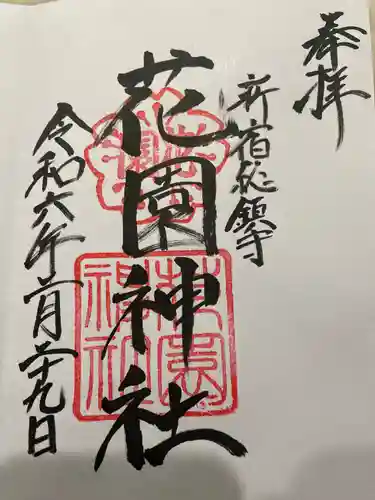 奉拝
新宿総鎮守
花園神社
令和六年二月二十九日
花園神社